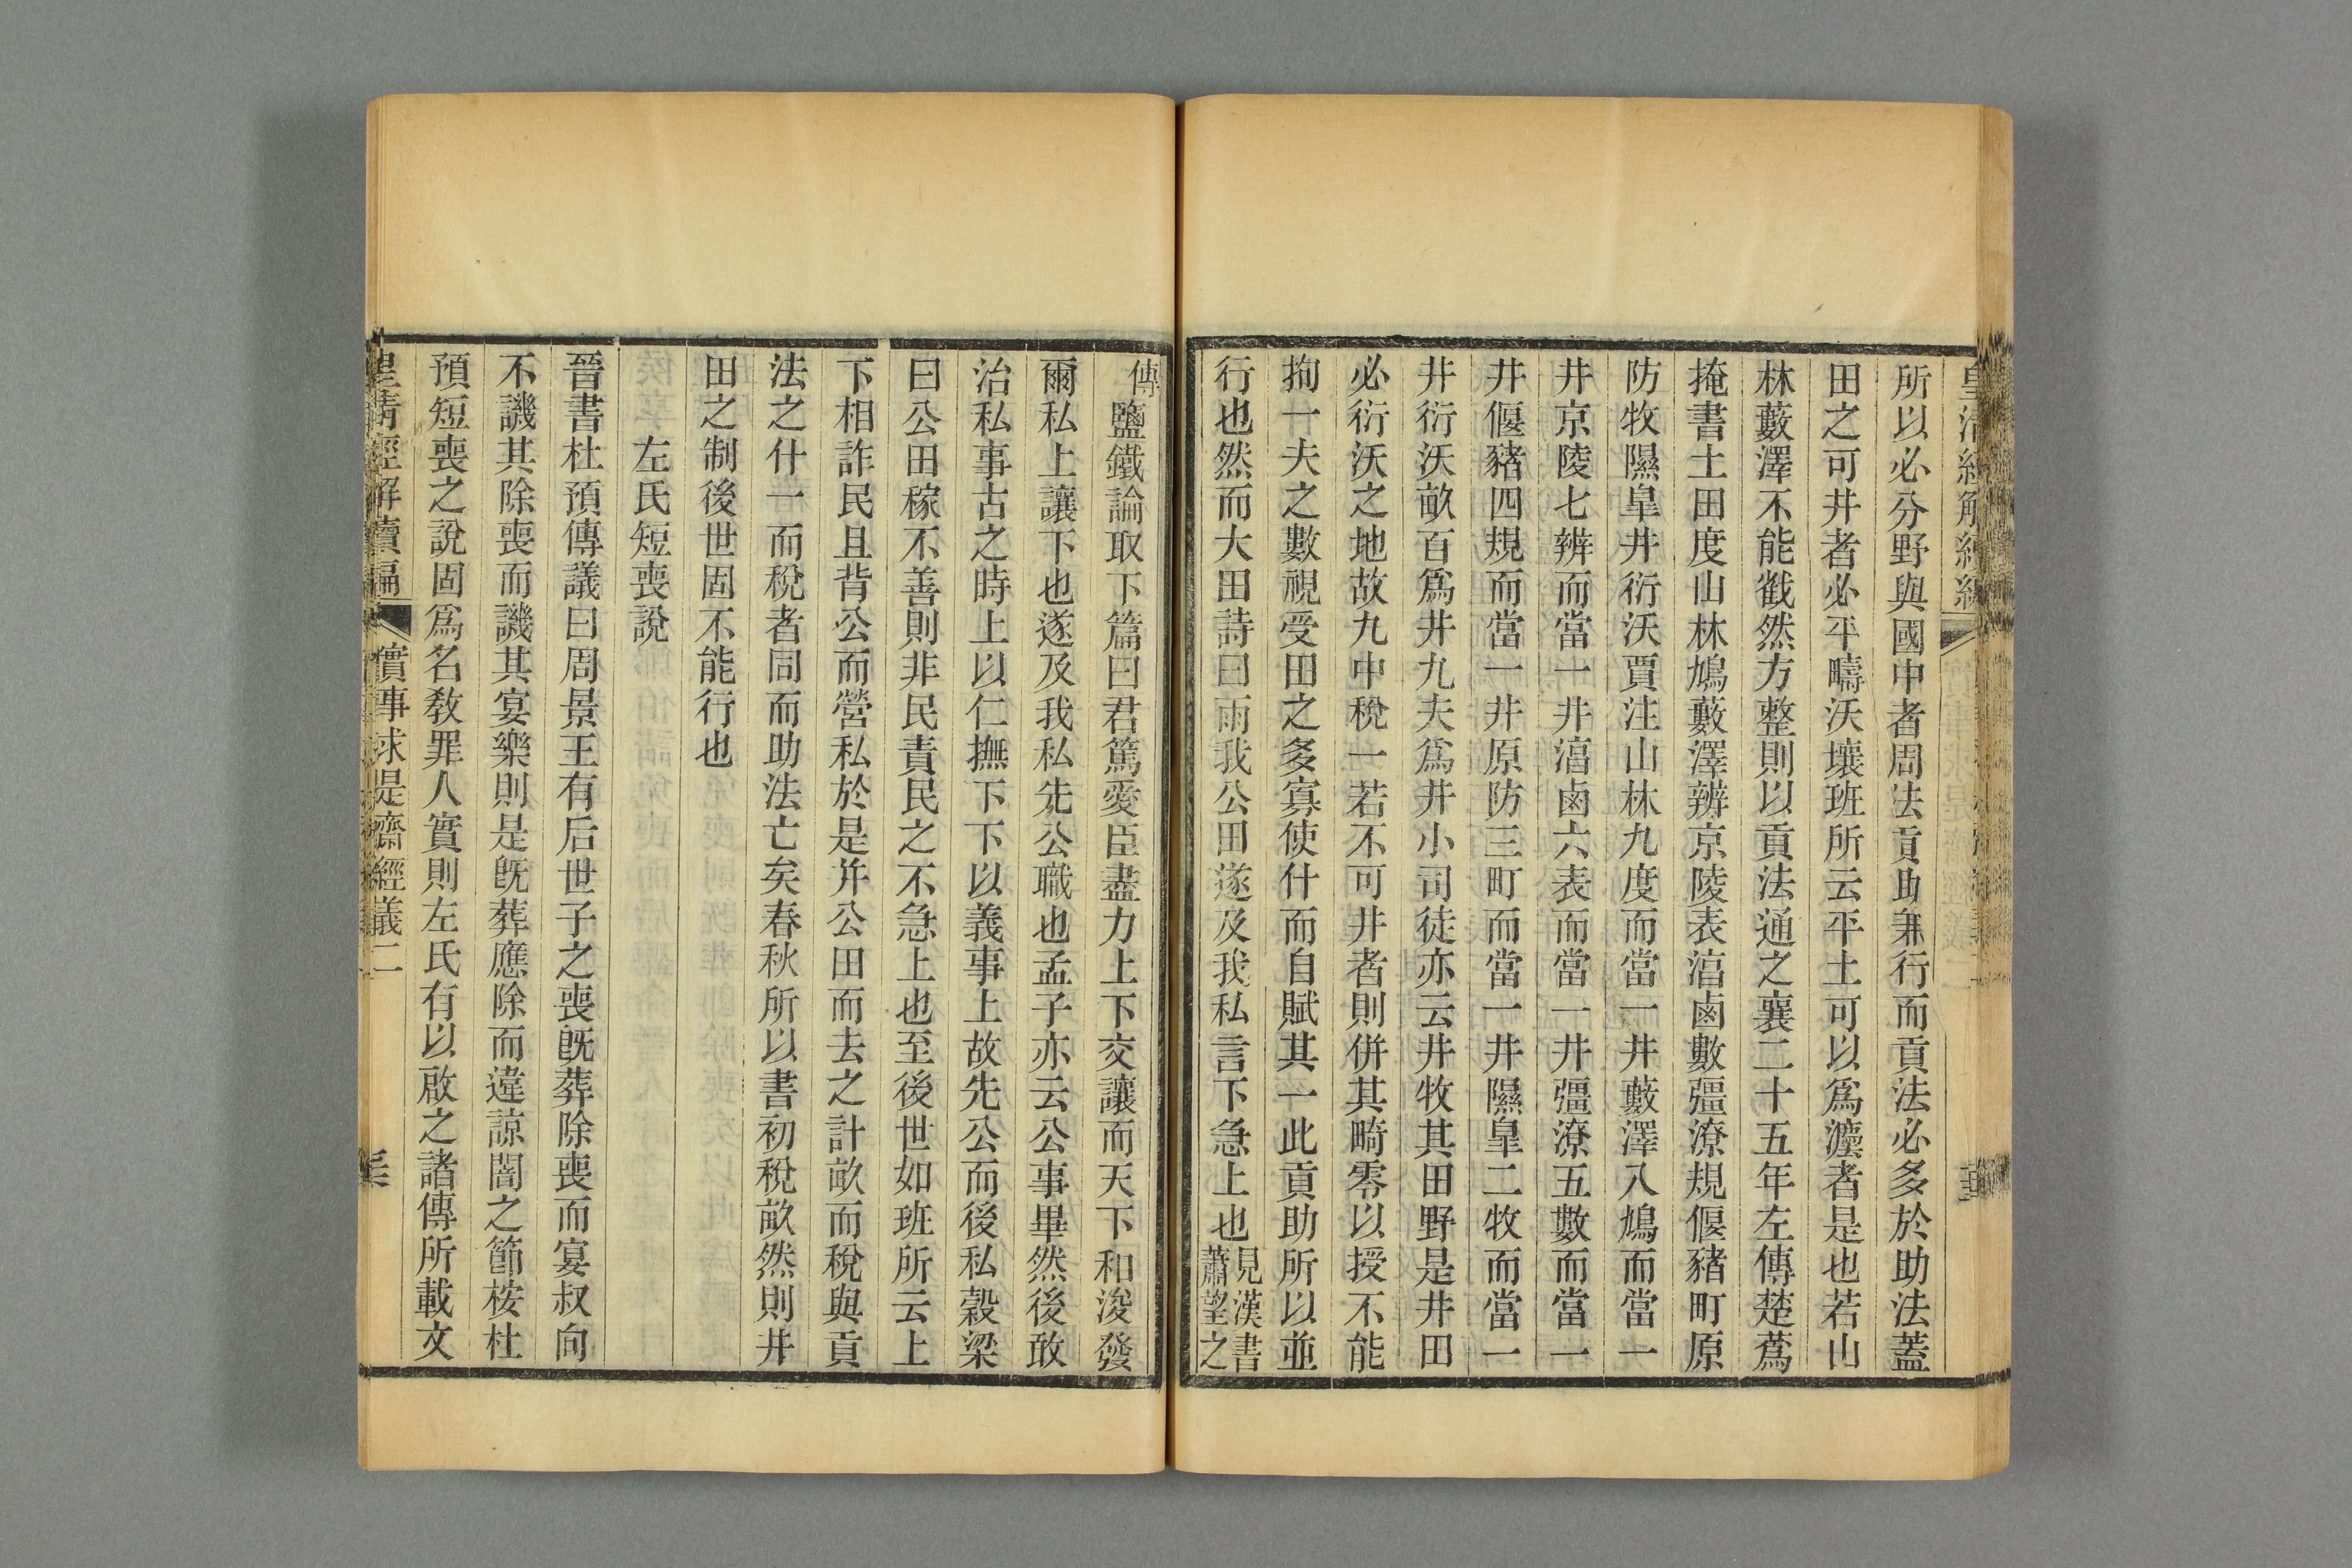 所以必分野與國中者周法貢助兼行而貢法必多於助法蓋
田之可井者必平疇沃壤班所云平土可以爲灋者是也若山
林藪澤不能截然方整則以貢法通之襄二十五年左傳楚蒍
掩書土田度山林鳩藪澤辨京陵表淳鹵數彊潦規偃豬町原
防牧隰皐井衍沃賈注山林九度而當一井藪澤八鳩而當一
井京陵七辨而當一井淳鹵六表而當一井彊潦五數而當一
井偃豬四規而當一井原防三町而當一井隰皐二牧而當一
井衍沃畝百爲井九夫爲井小司徒亦云井牧其田野是井田
必衍沃之地故九中稅一若不可井者則併其畸零以授不能
拘一夫之數視受田之多寡使什而自賦其一此貢助所以並
行也然而大田詩曰雨我公田遂及我私言下急上也見漢書蕭望之
傳鹽鐵論取下篇曰君篤愛臣盡力上下交讓而天下和浚發
爾私上讓下也遂及我私先公職也孟子亦云公事畢然後敢
治私事古之時上以仁撫下下以義事上故先公而後私穀梁
曰公田稼不善則非民責民之不急上也至後世如班所云上
下相詐民且背公而營私於是并公田而去之計畝而稅與貢
法之什一而稅者同而助法亡矣春秋所以書初稅畝然則井
田之制後世固不能行也
左氏短喪說
晉書杜預傳議曰周景王有后世子之喪旣葬除喪而宴叔向
不譏其除喪而譏其宴樂則是旣葬應除而違諒闇之節桉杜
預短喪之說固爲名敎罪人實則左氏有以啟之諸傳所載文
皇清經解續編 實事求是齋經義二